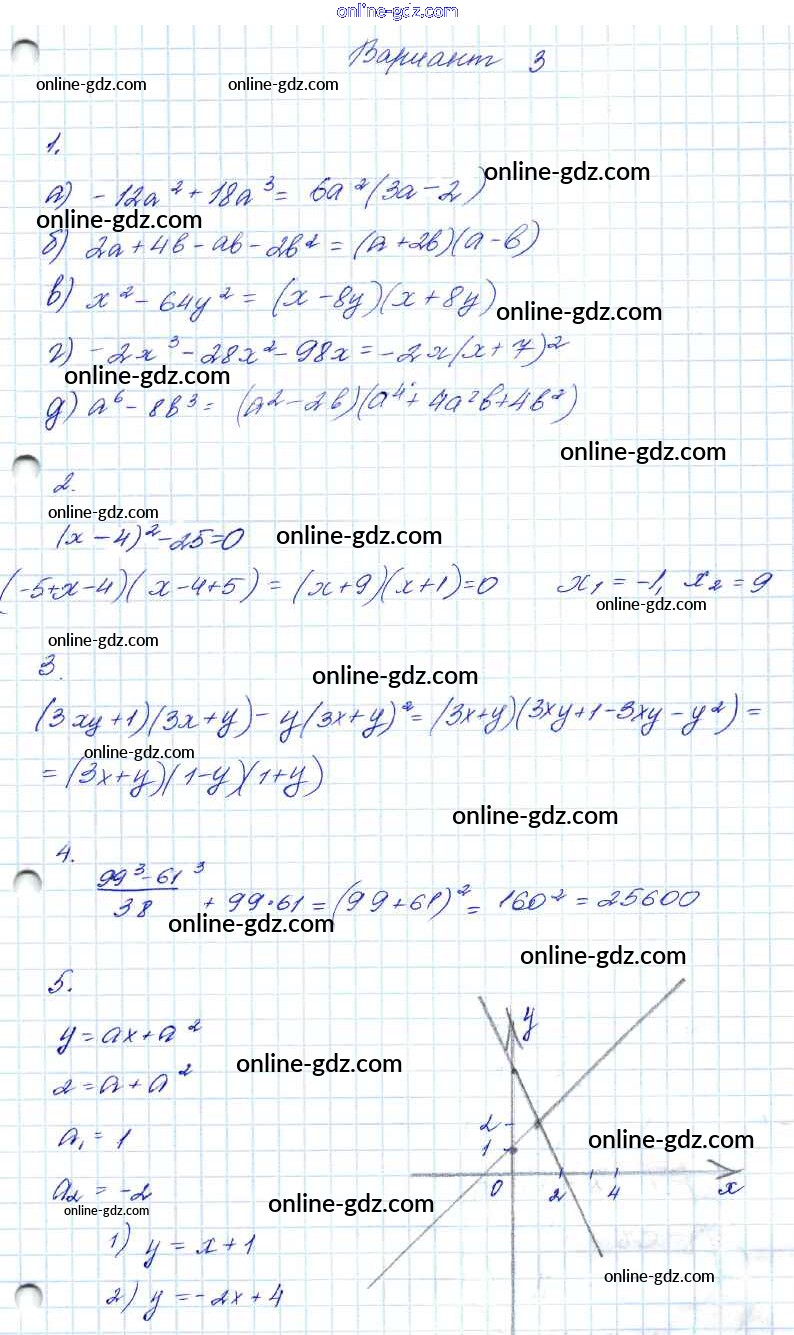 online-gdz.com
Вариант 3
online-gdz.com online-gdz.com
1.
а) -12a² + 18a³ = 6a²(3a-2) online-gdz.com
online-gdz.com
б) 2a+4b-ab-2b² = (a+2b)(a-b)
в) x² - 64y² = (x-8y)(x+8y) online-gdz.com
г) -2x³ - 28x² - 98x = -2x(x+7)²
online-gdz.com
д) a⁶ - 8b³ = (a²-2b)(a⁴+4a²b+4b²)
online-gdz.com
2.
online-gdz.com
(x-4)² - 25=0 online-gdz.com
(-5+x-4)(x-4+5) = (x+9)(x+1)=0 x₁ = -1, x₂ = 9
online-gdz.com
online-gdz.com
3.
online-gdz.com
(3xy+1)(3x+y) - y(3x+y)² = (3x+y)(3xy+1-3xy-y²) =
online-gdz.com
= (3x+y)(1-y)(1+y)
online-gdz.com
4.
(99³-61³)/38 + 99·61 = (99+61)² = 160² = 25600
online-gdz.com
online-gdz.com
5.
y = ax+a²
online-gdz.com
2 = a + a²
a₁ = 1
a₂ = -2
online-gdz.com
online-gdz.com
1) y = x+1
2) y = -2x+4
y
2
1
0 2 4 x
online-gdz.com
online-gdz.com